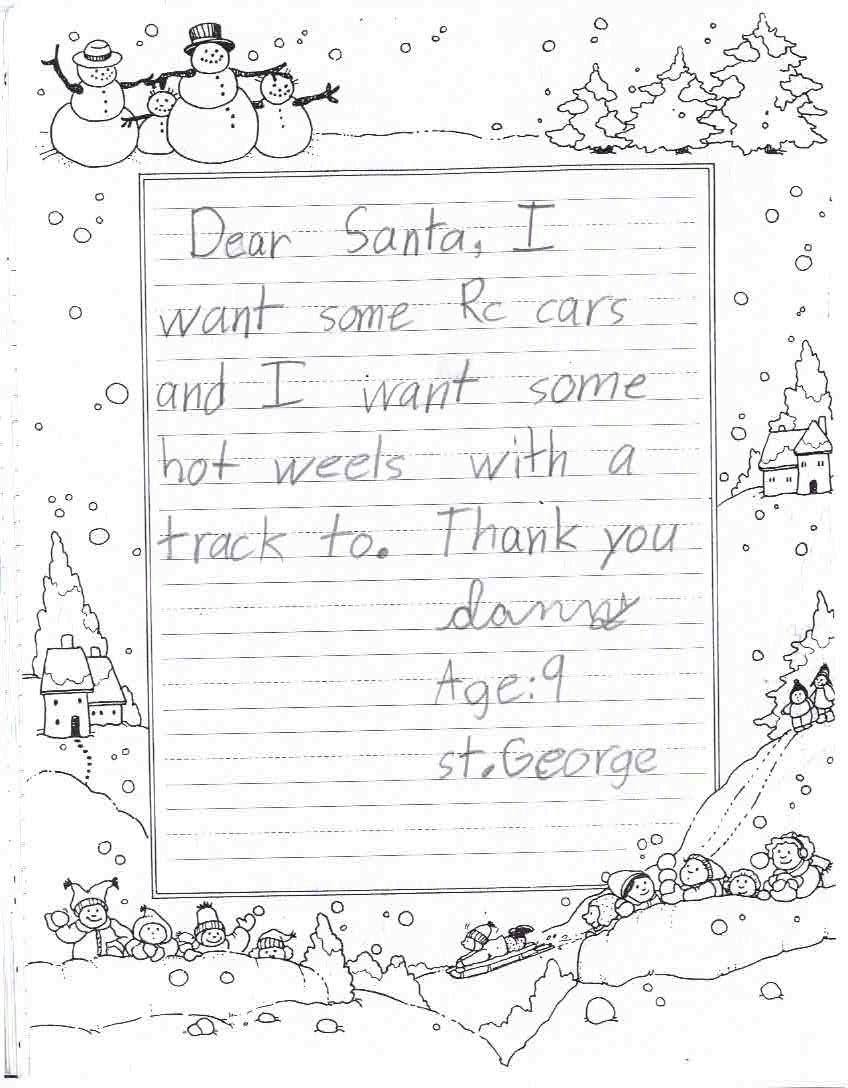 Dear Santa, I
want some Rc cars
and I want some
hot weels with a
track to. Thank you
danny
Age: 9
st. George